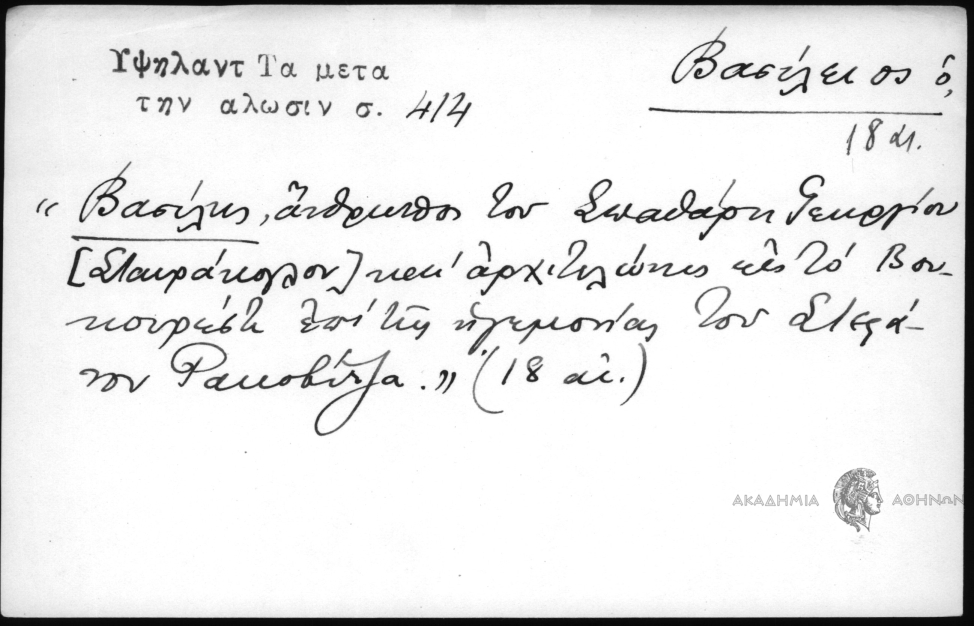 Υψηλαντ Τα μετα
την αλωσιν σ. 414
Βασίλειος ὁ,
18 αι.
« Βασίλης, ἄνθρωπος του Σπαθάρη Γεωργίου
[Σταυράκογλου] καί ἀρχιτελώνης εἰς τό Βου-
κουρέστι ἐπί τῆς ἡγεμονίας του Στεφά-
νου Ρακοβίτζα.» (18 αἰ.)
ΑΚΑΔΗΜΙΑ ΑΘΗΝΩΝ